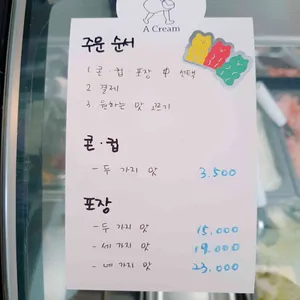 A Cream
주문 순서
1 콘·컵 포장 中 선택
2 결제
3 원하는 맛 고르기
콘·컵
- 두 가지 맛 3.500
포장
- 두 가지 맛 15,000
- 세 가지 맛 19,000
- 네 가지 맛 23,000